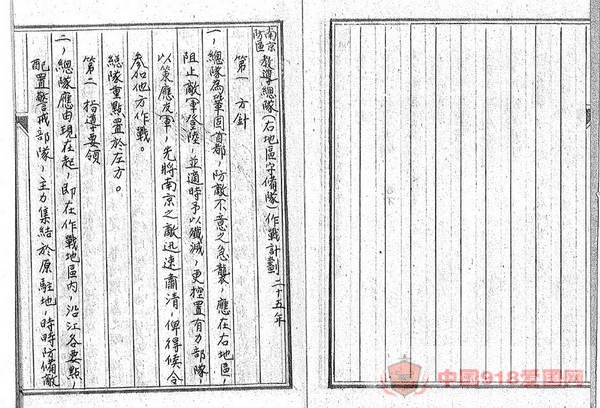 南京
防區 教導總隊（右地區字備隊）作戰計劃 二十五年
第一 方針
一，總隊為鞏固首都，防敵不意之急襲，應在右地區，
阻止敵軍登陸，並適時予以殲滅，更控置有力部隊，
以策應友軍，先將南京之敵迅速肅清，俾得候令
參加他方作戰。
總隊重點置於左方。
第二 指導要領
二，總隊應由現在起，即在作戰地區內，沿江各要點，
配置警戒部隊，主力集結於原駐地，時時防備敵
中国918爱国网